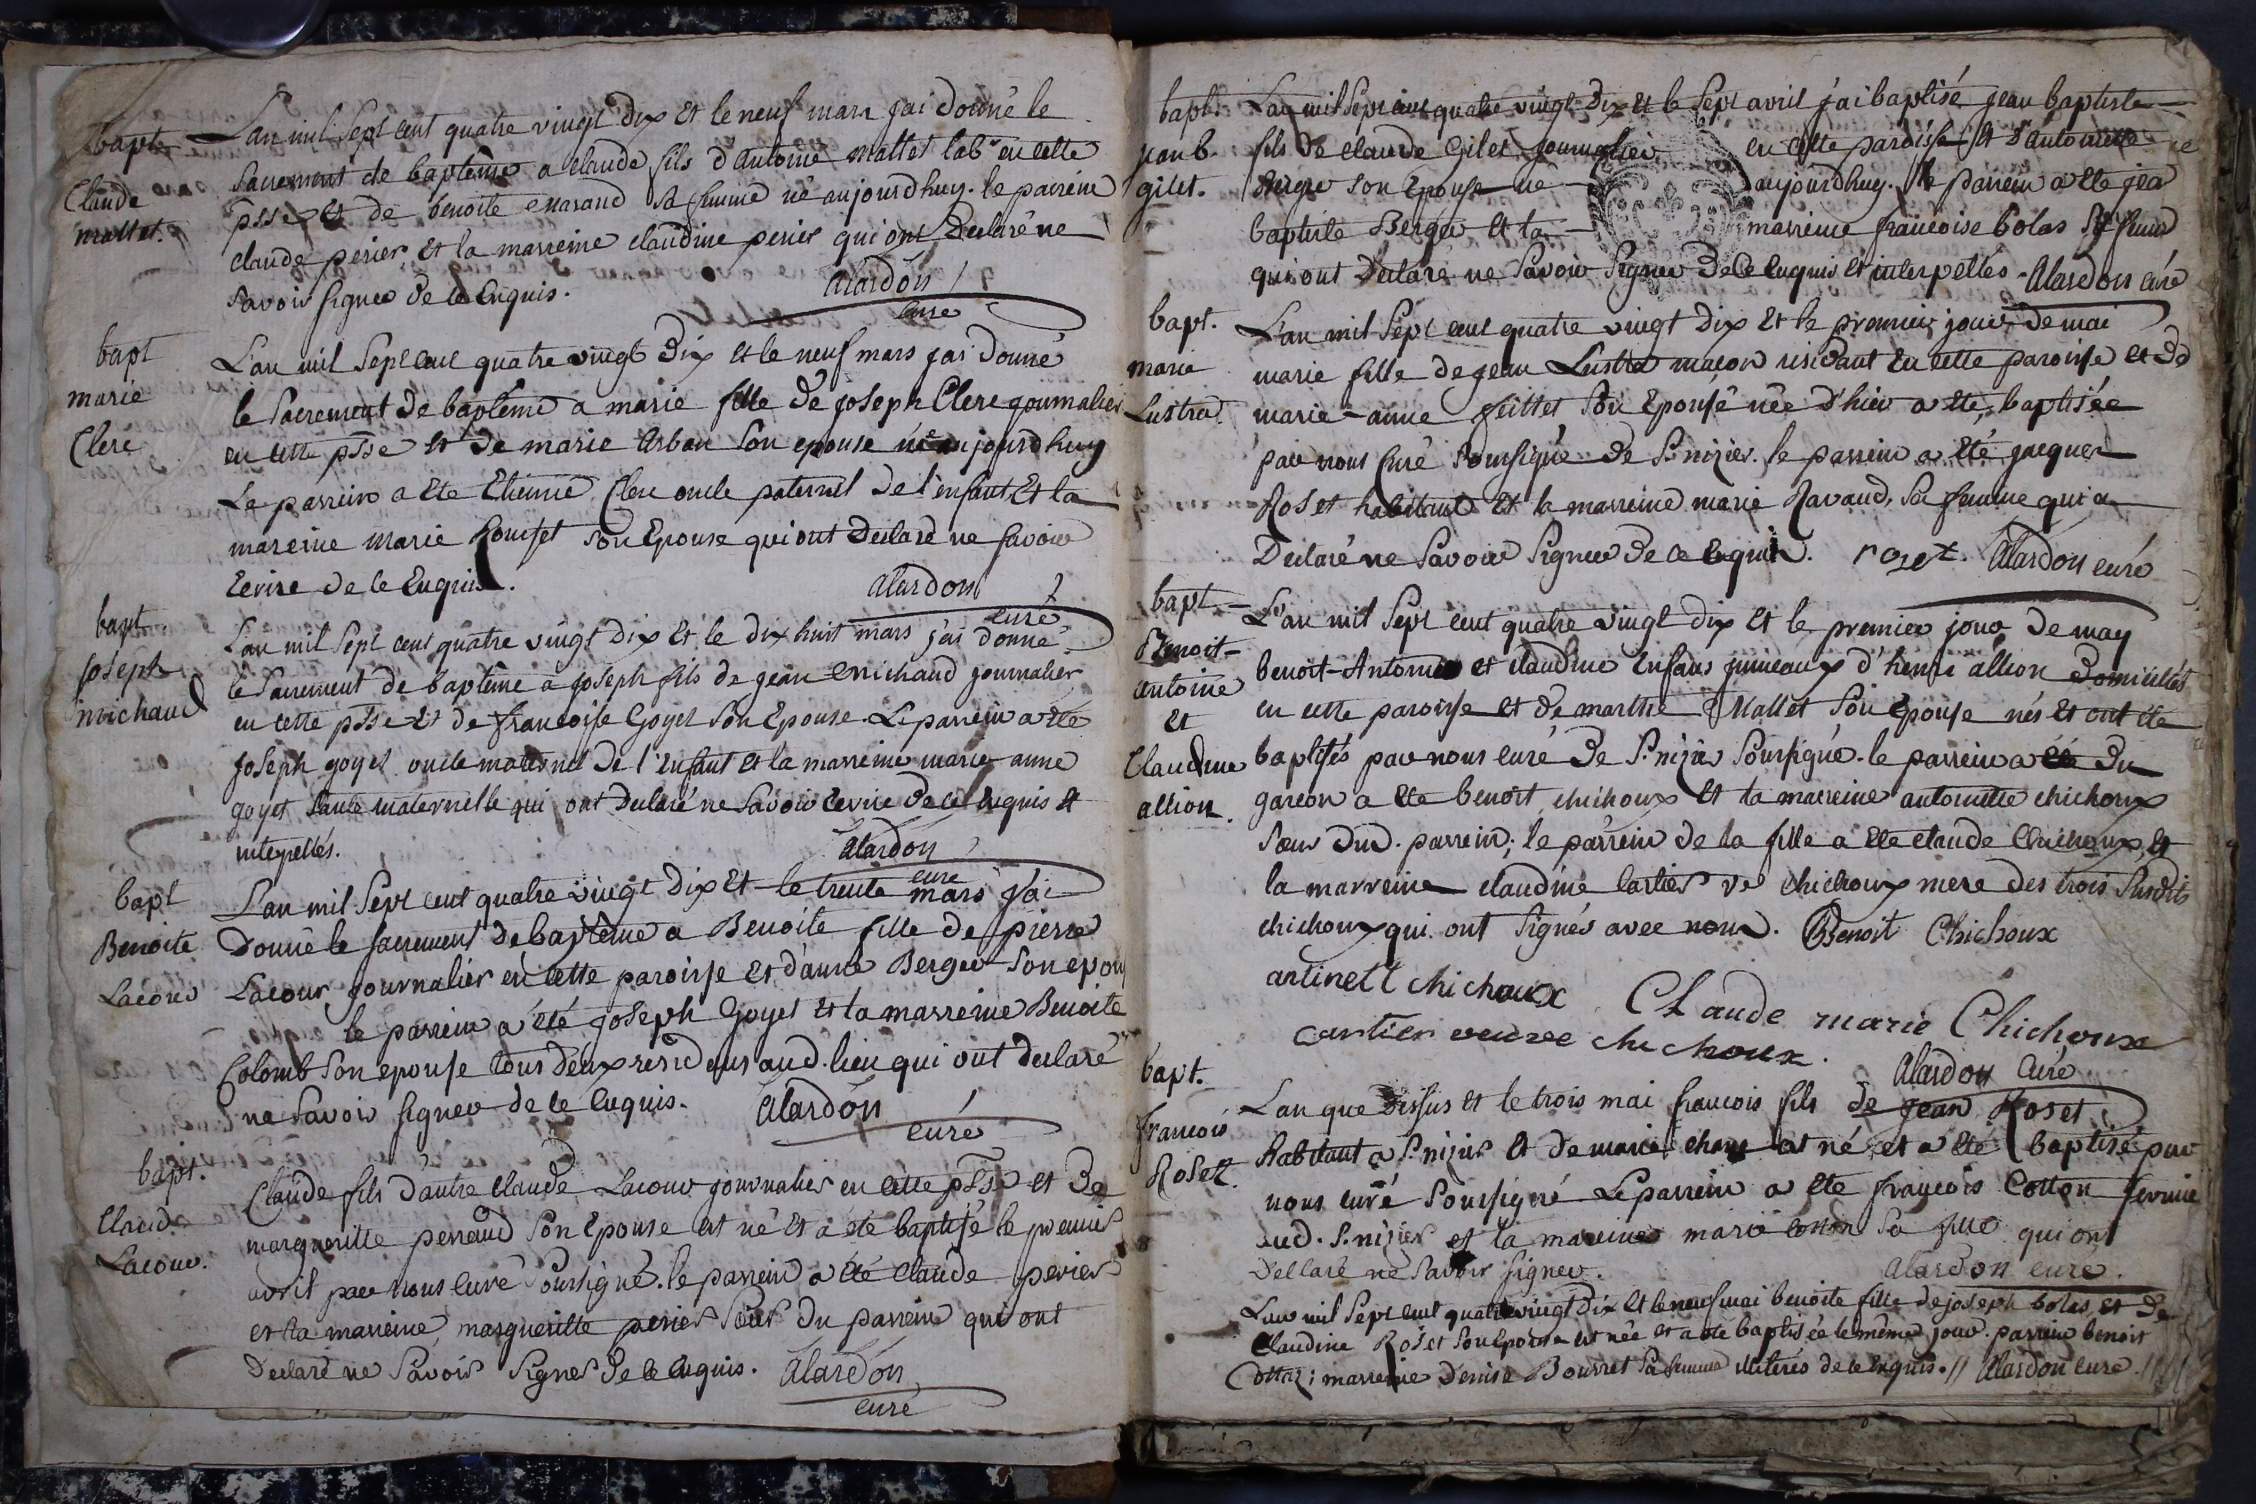 bapt.
Claude
mallet.
L'an mil sept cent quatre vingt dix et le neuf mars jai donné le
sacrement de baptême a claude fils d'antoine mallet labr en cette
psse et de benoite marand sa femme né aujourdhuy. le parrein
claude perier et la marreine claudine perier qui ont declaré ne
savoir signer de ce enquis.
alardon
curé
bapt
marie
Clerc
L'an mil sept cent quatre vingt dix et le neuf mars jai donné
le sacrement de baptême a marie fille de joseph Clerc journalier
en cette psse et de marie arban son epouse née aujourdhuy
Le parrein a ete Etienne Clerc oncle paternel de l'enfant et la
mareine marie Rousset son Epouse qui ont declaré ne savoir
Ecrire de ce Enquis.
alardon
curé
bapt
joseph
michaud
L'an mil sept cent quatre vingt dix et le dix huit mars j'ai donné
le sacrement de baptême a joseph fils de jean michaud journalier
en cette psse et de francoise Goyet son Epouse. Le parrein a ete
joseph goyet oncle maternel de l'enfant et la marreine marie anne
goyet tante maternelle qui ont declaré ne savoir ecrire de ce enquis et
interpellés.
alardon
curé
bapt
Benoite
Lacour
L'an mil sept cent quatre vingt dix et le trente mars j'ai
Donné le sacrement de baptême a Benoite fille de pierre
Lacour journalier en cette paroisse et d'anne Berger son epou
le parrein a été joseph Goyet et la marreine Benoite
Colomb son epouse tous deux residens aud. lieu qui ont declaré
ne savoir signer de ce enquis.
alardon
curé
bapt.
Claud.
Lacour.
Claude fils d'autre claude Lacour journalier en cette psse et de
marguerite perraud son Epouse est né et a été baptisé le premier
avril par nous curé soussigné. le parrein a été claude perier
et la marreine, marguerite perier soeur du parrein qui ont
Declaré ne savoir signer de ce enquis.
alardon
curé
bapt.
jean b.
gilet.
L'an mil sept cent quatre vingt dix et le sept avril j'ai baptisé jean baptiste
fils de claude Gilet journalier en cette paroisse et d'antoinette
Berger son Epouse né aujourdhuy. le parrein a ete jea
baptiste Berger et la marreine francoise bolas sa femme
qui ont declaré ne savoir signer de ce enquis et interpellés. alardon curé
bapt.
marie
Lustra.
L'an mil sept cent quatre vingt dix et le premier jour de mai
marie fille de jean Lustra maçon residant en cette paroisse et de
marie-anne feuillet son Epouse née d'hier a eté baptisée
par nous curé soussigné de St. nizier. le parrein a été jacques
Roset habitant et la marreine marie Ravaud, sa femme qui a
Declaré ne savoir signer de ce enquis. rozet. alardon curé
bapt.
Benoit-
antoine
et
Claudine
allion.
L'an mil sept cent quatre vingt dix et le premier jour de may
benoit-Antoine et claudine Enfans jumeaux d'henri allion domiciliés
en cette paroisse et de marthe Mallet son Epouse nés et ont ete
baptisés par nous curé de St. nizier soussigné. le parrein a été du
garcon a ete benoit chichoux et la marreine antoinette chichoux
sœur dud. parrein; le parrein de la fille a ete claude Chichoux, et
la marreine claudine Cartier ve chichoux mere des trois susdits
chichoux qui ont signés avec nous. Benoit Chichoux
antinett chichoux Claude marie Chichoux
cartier veuve chichoux.
alardon curé
bapt.
francois
Roset.
L'an que dessus et le trois mai francois fils de jean Roset
Habitant a St. nizier et de marie est né et a eté baptisé par
nous curé soussigné Le parrein a ete françois Cotton fermier
aud. St. nizier et la mareine marie cotton sa fille qui ont
Declaré ne savoir signer.
alardon curé.
L'an mil sept cent quatre vingt dix et le neuf mai benoite fille de joseph bolas et de
Claudine Roset son Epouse est née et a été baptisée le même jour. parrein benoit
Cottaz; marreine Denise Bourret sa femme illiterés de ce enquis. // alardon curé. //